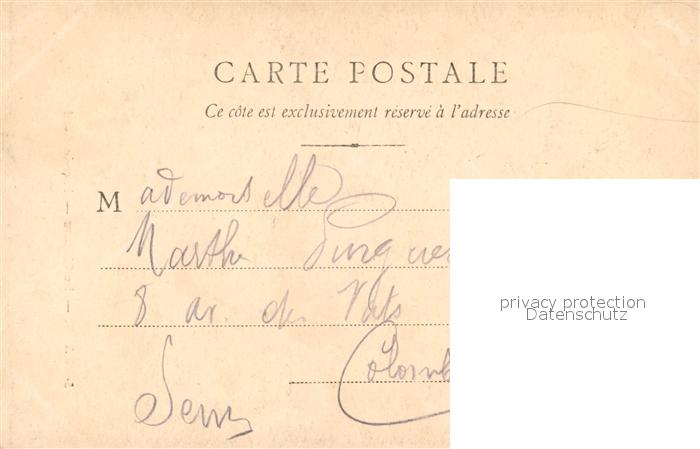 CARTE POSTALE
Ce côte est exclusivement réservé à l'adresse
Mademoiselle
Marthe
8 av. des
Colomb
Seine
privacy protection
Datenschutz